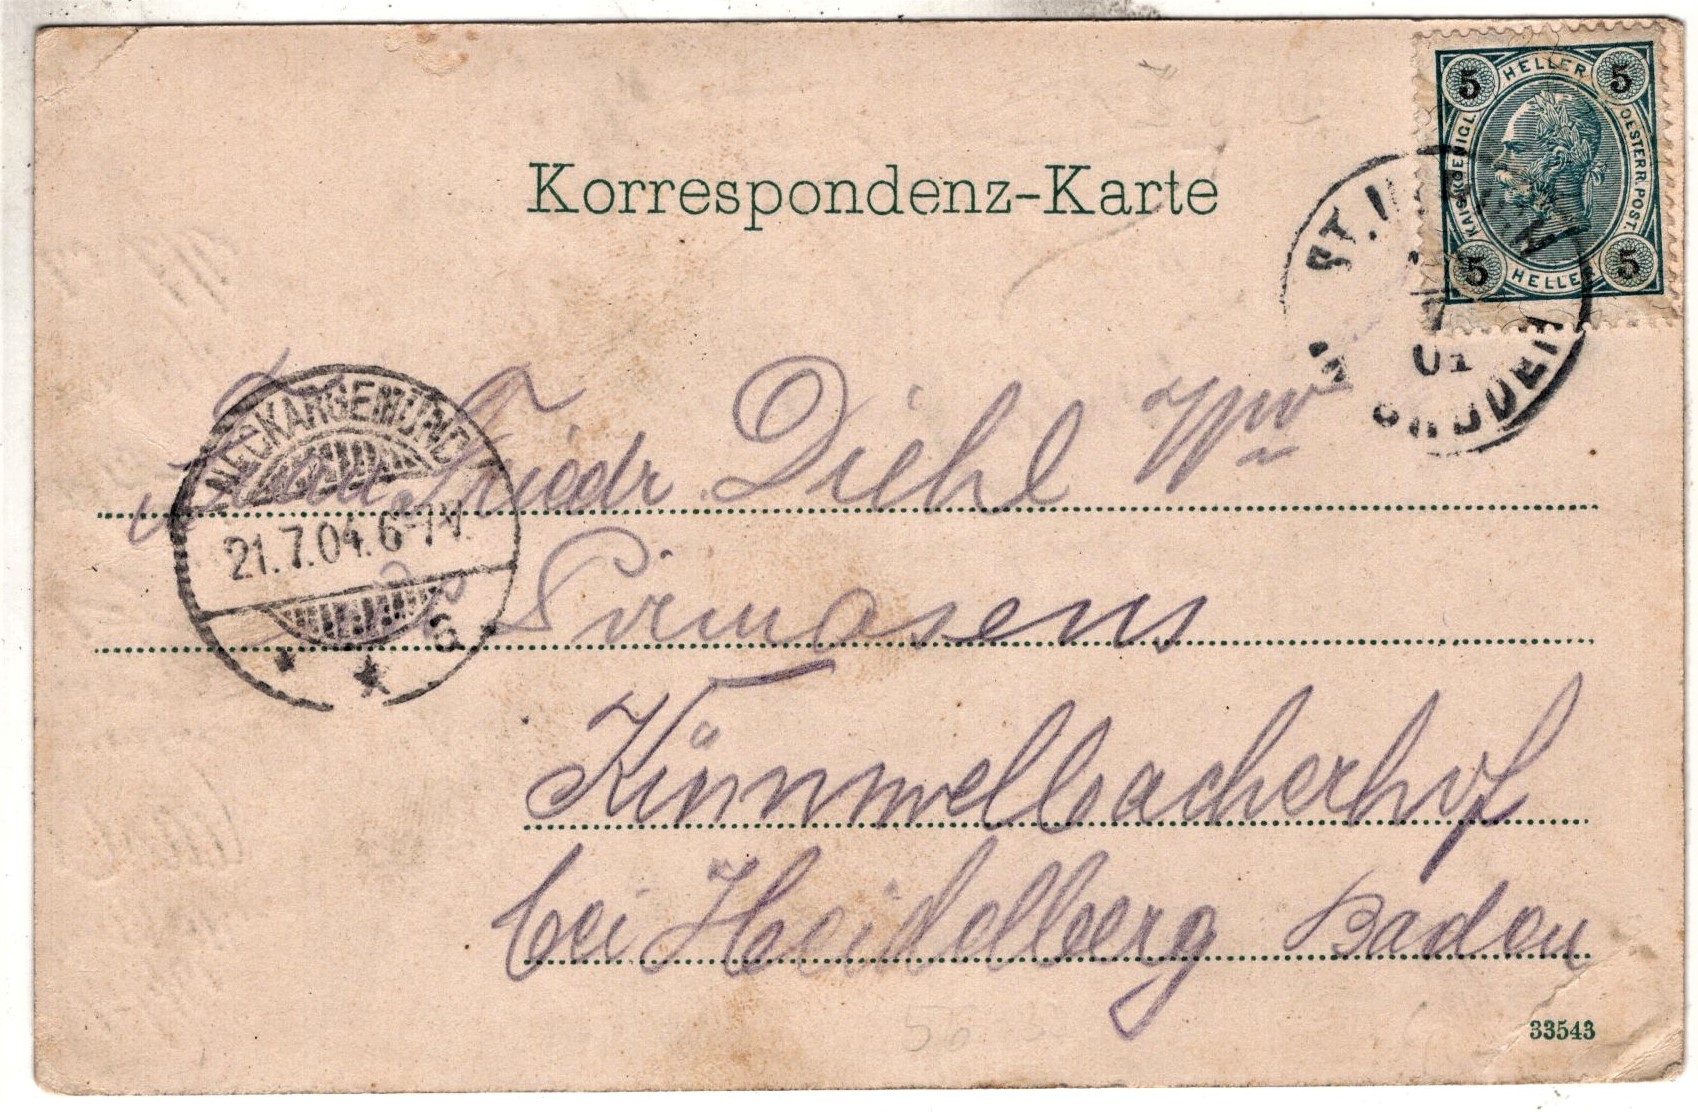 Korrespondenz-Karte
5 HELLER 5
KAIS. KOENIGL. OESTERR. POST.
5 HELLER 5
04
NECKARGEMÜND
21.7.04. 6-7 V.
Frau Friedr. Diehl Ww
Pirmasens
Kümmelbacherhof
bei Heidelberg Baden
33543